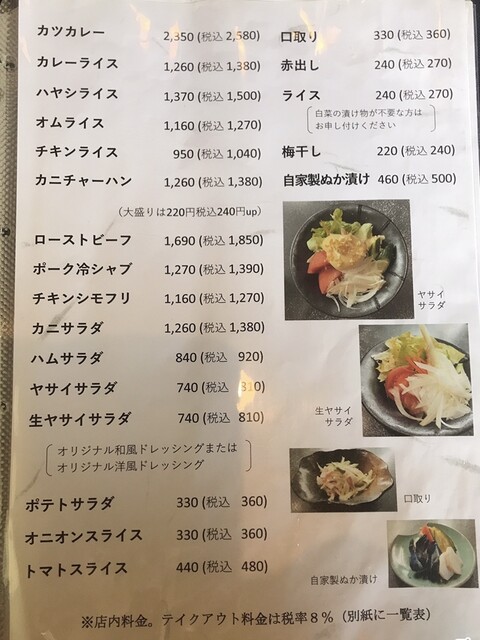 カツカレー 2,350 (税込 2,580)
カレーライス 1,260 (税込 1,380)
ハヤシライス 1,370 (税込 1,500)
オムライス 1,160 (税込 1,270)
チキンライス 950 (税込 1,040)
カニチャーハン 1,260 (税込 1,380)
(大盛りは220円税込240円up)
ローストビーフ 1,690 (税込 1,850)
ポーク冷シャブ 1,270 (税込 1,390)
チキンシモフリ 1,160 (税込 1,270)
カニサラダ 1,260 (税込 1,380)
ハムサラダ 840 (税込 920)
ヤサイサラダ 740 (税込 810)
生ヤサイサラダ 740 (税込 810)
オリジナル和風ドレッシングまたは
オリジナル洋風ドレッシング
ポテトサラダ 330 (税込 360)
オニオンスライス 330 (税込 360)
トマトスライス 440 (税込 480)
口取り 330 (税込 360)
赤出し 240 (税込 270)
ライス 240 (税込 270)
白菜の漬け物が不要な方は
お申し付けください
梅干し 220 (税込 240)
自家製ぬか漬け 460 (税込 500)
ヤサイ
サラダ
生ヤサイ
サラダ
口取り
自家製ぬか漬け
※店内料金。テイクアウト料金は税率8%（別紙に一覧表）